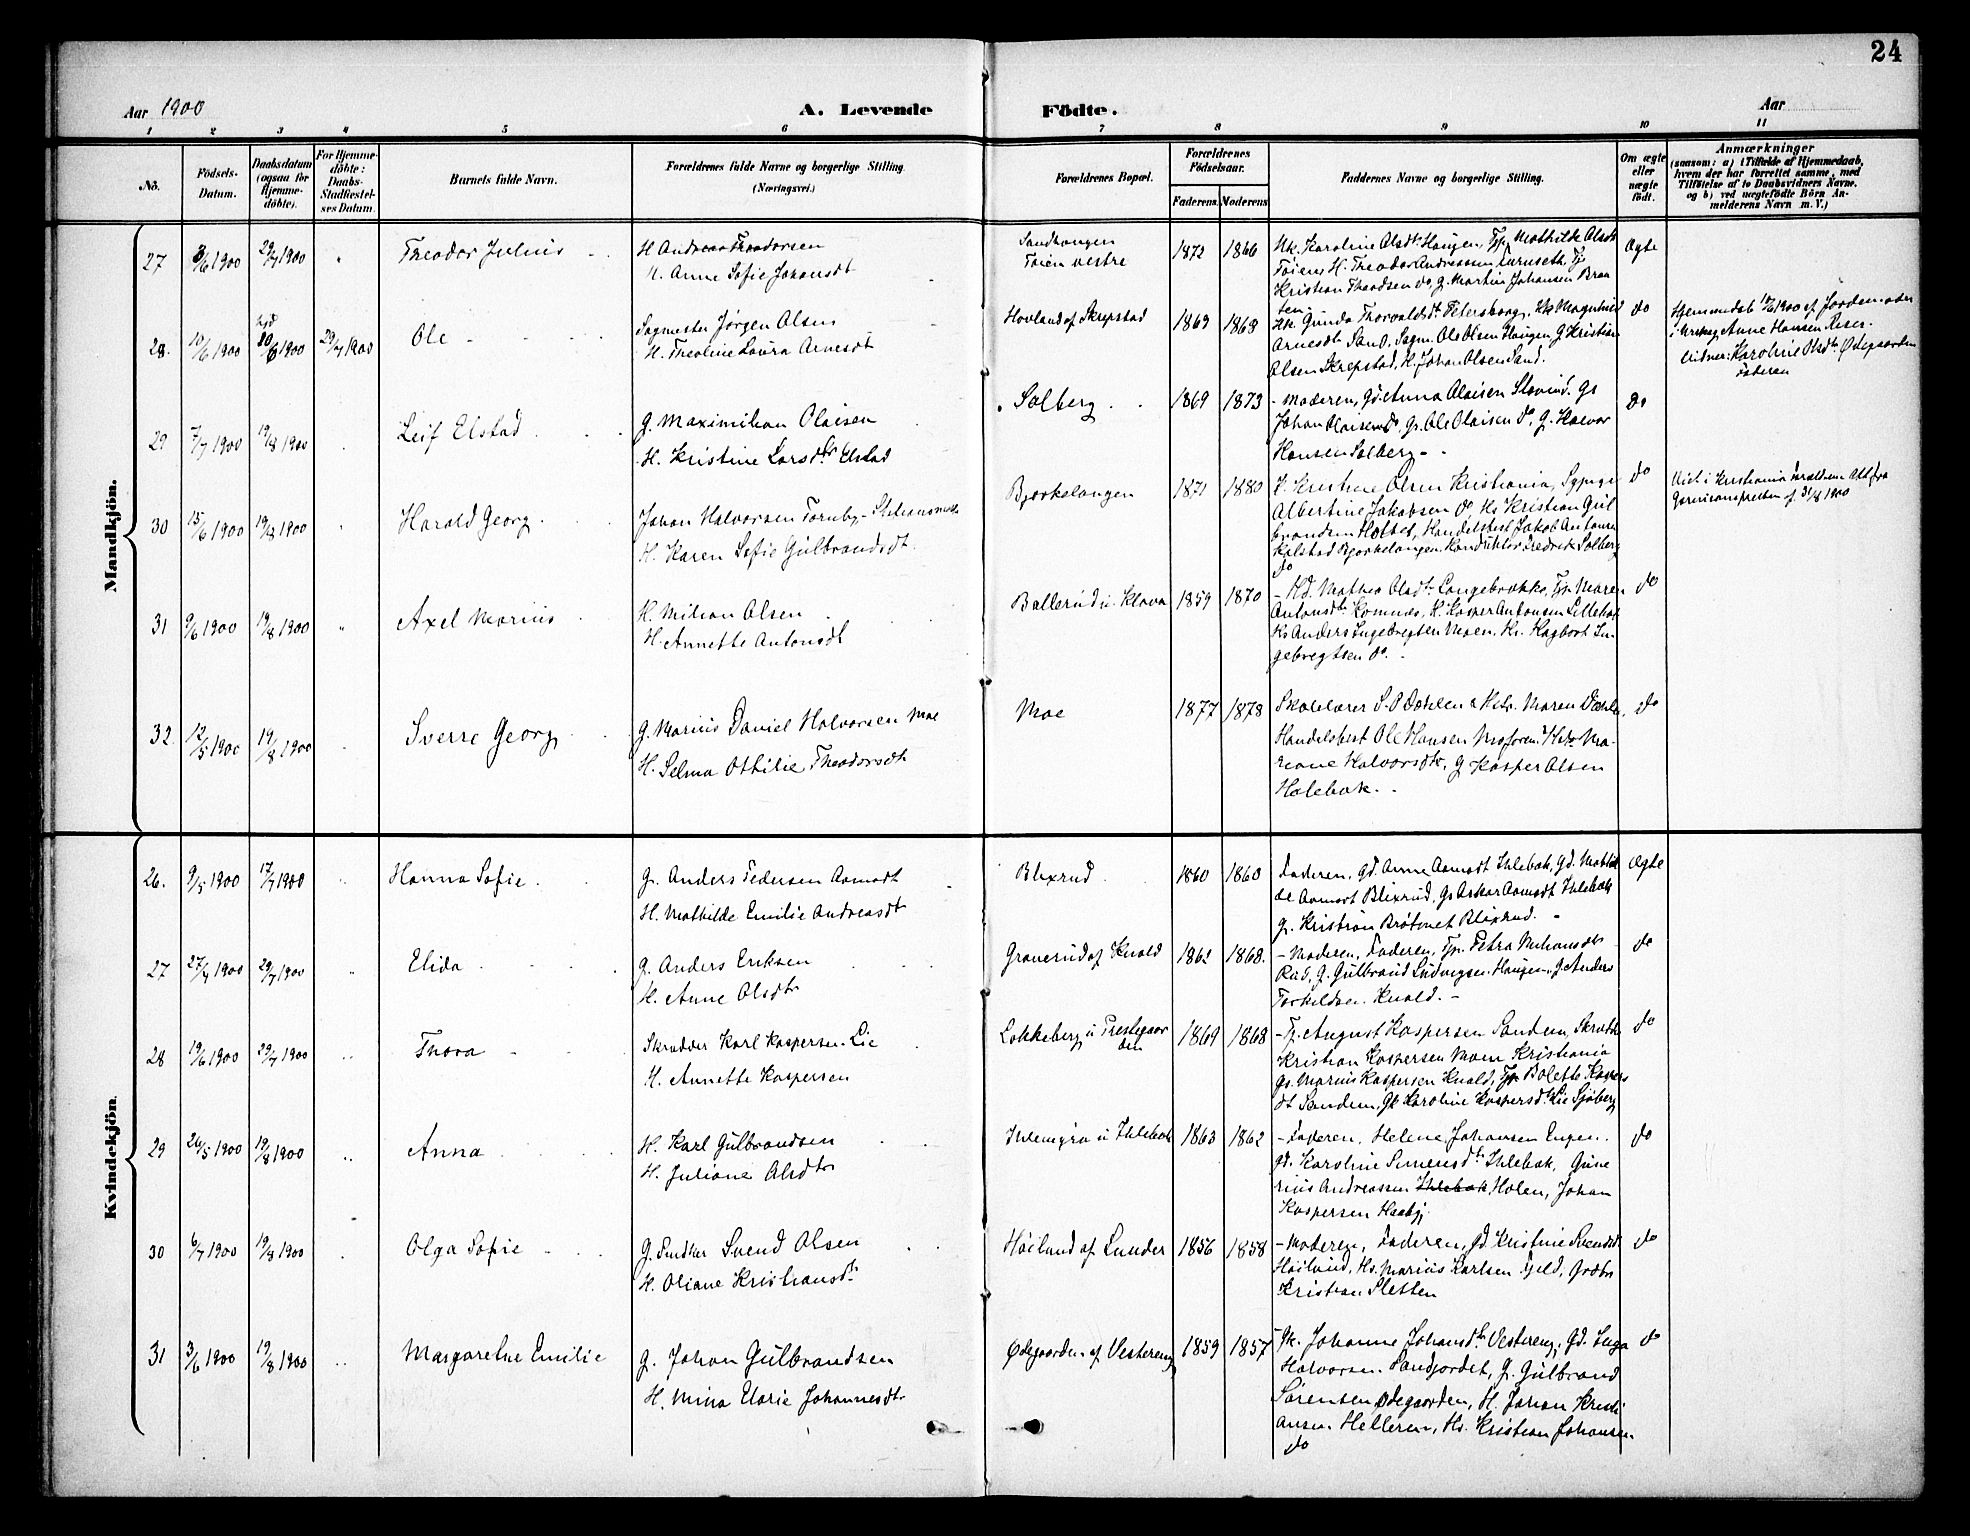 24
Aar 1900
A. Levende
Födte.
Aar
1 2 3 4 5 6 7 8 9 10 11
No.
Födsels-
Datum.
Daabsdatum
(ogsaa for
Hjemme-
döbte).
For Hjemme-
döbte:
Daabs-
Stadfæstel-
ses Datum.
Barnets fulde Navn.
Forældrenes fulde Navne og borgerlige Stilling
(Næringsvei.)
Forældrenes Bopæl.
Forældrenes
Födselsaar.
Faderens Moderens
Faddernes Navne og borgerlige Stilling.
Om ægte
eller
uægte
födt.
Anmærkninger
(saasom: a) i Tilfælde af Hjemmedaab,
hvem der har forrettet samme, med
Tilföielse af to Daabsvidners Navne.
og b) ved uægtefödte Börn An-
melderens Navn m. V.)
Mandkjön.
27 3/6 1900 29/7 1900 " Theodor Julius
H. Andreas Theodorsen
H. Anne Sofie Johansdt
Sandhougen
Töien vestre
1872 1866
Hk. Karoline Olsdt. Haugen, Tjp. Mathilde Olsdt
Töien, H. Theodor Andreassen Tj
Kristian Theodsen do, g. Martin Johansen Braa
ten
Ægte
28. 10/6 1900 10/6 1900 29/7 1900 Ole
Sagmester Jörgen Olsen
H. Theoline Laura Arnesdt
Hovland af Skrepstad
1869 1868
Hk. Gunda Thorvaldsdt. Petersborg, Hk Magnhild
Arnesdt. Sand, Sagm. Ole Olsen Haugen, G Kristian
Olsen Skrepstad, H. Johan Olsen Sand.
do
Hjemmedöb 10/6 1900 af Jordemoder
i Urskog Anne Hansen Roser.
Vidner: Karoline Olsdtr. Ødegaarden
Faderen
29 7/7 1900 19/8 1900 Leif Elstad
G. Maximilian Olaisen
H. Kristine Larsdtr Elstad
Solberg
1869 1873
- Moderen, Gd. Anna Olaisen Slavind. Gs
Johan Olaisen do, Gs. Ole Olaisen do, G. Halvor
Hansen Solberg -
Do
30 15/6 1900 19/8 1900 " Harald Georg
Johan Halvorsen Tornby - Stationsmester
H. Karen Sofie Gulbrandsdt.
Bjørkelangen
1871 1880
H. Kristine Olsen Kristiania, Sypige
Albertine Jakobsen do, Hs Kristian Gul
brandsen Holtet, Handelsbest Jakob Antonsen
Kolstad Bjørkelangen, Konduktør Fredrik Solberg
do
do
Viet i Kristiania Forældrene Att. fra
Garnisonspresten af 31/8 1900
31 9/6 1900 19/8 1900 " Axel Marius
H. Milian Olsen
H. Annette Antonsdt
Ballerud u. Kleva
1859 1870
- Kd. Mathea Olsdtr. Langebrække, Tjp. Maren
Antonsdtr. Komnæs, H. Kasper Antonsen Lillebæk
Ks Anders Ingebregtsen Moen, Ks. Hagbart In
gebregtsen do. -
do
32. 12/5 1900 19/8 1900 Sverre Georg
G. Marius Daniel Halvorsen Moe
H. Selma Othilie Theodorsdt
Moe
1877 1878
Skolelærer S. P. Dæhlen & Hstr. Maren Dæhlen,
Handelsbest Ole Hansen Mosoren, Hstr. Ma-
riane Halvorsdtr, G Kasper Olsen
Holebæk. -
do
Kvindekjön.
26. 9/5 1900 17/7 1900 " Hanna Sofie
G. Anders Pedersen Aamodt
H. Mathilde Emilie Andreasdt
Blixrud
1860 1860
Faderen, Gd. Anna Aamodt Ihlebæk, Gd. Mathil
de Aamodt Blixrud, Gs Askar Aamodt Ihlebæk
G. Kristian Bråtenet Blixrud. -
Ægte
27 27/4 1900 29/7 1900 " Elida
G. Anders Eriksen
H. Anne Olsdtr
Graverud af Kvald
1862 1868.
- Moderen, Faderen, Tjp. Petra Mikansdtr
Rud, G. Gulbrand Ludvigsen Haugen, G. Anders
Torkildsen Kvald. -
do
28 19/6 1900 29/7 1900 " Thora
Skrædder Karl Kaspersen Lie
H. Annette Kaspersen
Lokkeberg u Prestegaar
den
1869 1868
- Tj. August Kaspersen Sandem, Skrædd
Kristian Kaspersen Moen Kristiania
Gs. Marius Kaspersen Kvald, Tjp Bolette Kaspers
dt Sandem, Gk Karoline Kaspersdt. Lie Sjöberg
do
29 26/5 1900 19/8 1900 " Anna
H. Karl Gulbrandsen
H. Juliane Olsdtr
Ihlemyra u Ihlebæk
1863 1862
- Faderen, Helene Johansen Engen.
Gd. Karoline Simensdtr. Ihlebæk, Gune
rius Andreassen Ihlebæk, Holen, Johan
Kaspersen Haabÿ.
do
30 6/7 1900 19/8 1900 Olga Sofie
G. Snedker Svend Olsen
H. Oliane Kristiansdtr
Höiland af Lunder
1856 1858
- Moderen, Faderen, Gd. Kristine Svendsdt
Höilund, Hs. Marius Karlsen Gjeld, Gaardbr
Kristian Sletten
do
31 3/6 1900 19/8 1900 " Margarethe Emilie
G. Johan Gulbrandsen
H. Mina Elarie Johannesdt
Ødegaarden af Vestereng
1859 1857
Gk. Johanne Johansdtr. Vestereng, Gd. Inga
Halvorsen Sandjordet, G. Gulbrand
Sörensen Ødegaarden, H. Johan Kristi
ansen Helleren, Hs. Kristian Johansen
do
do